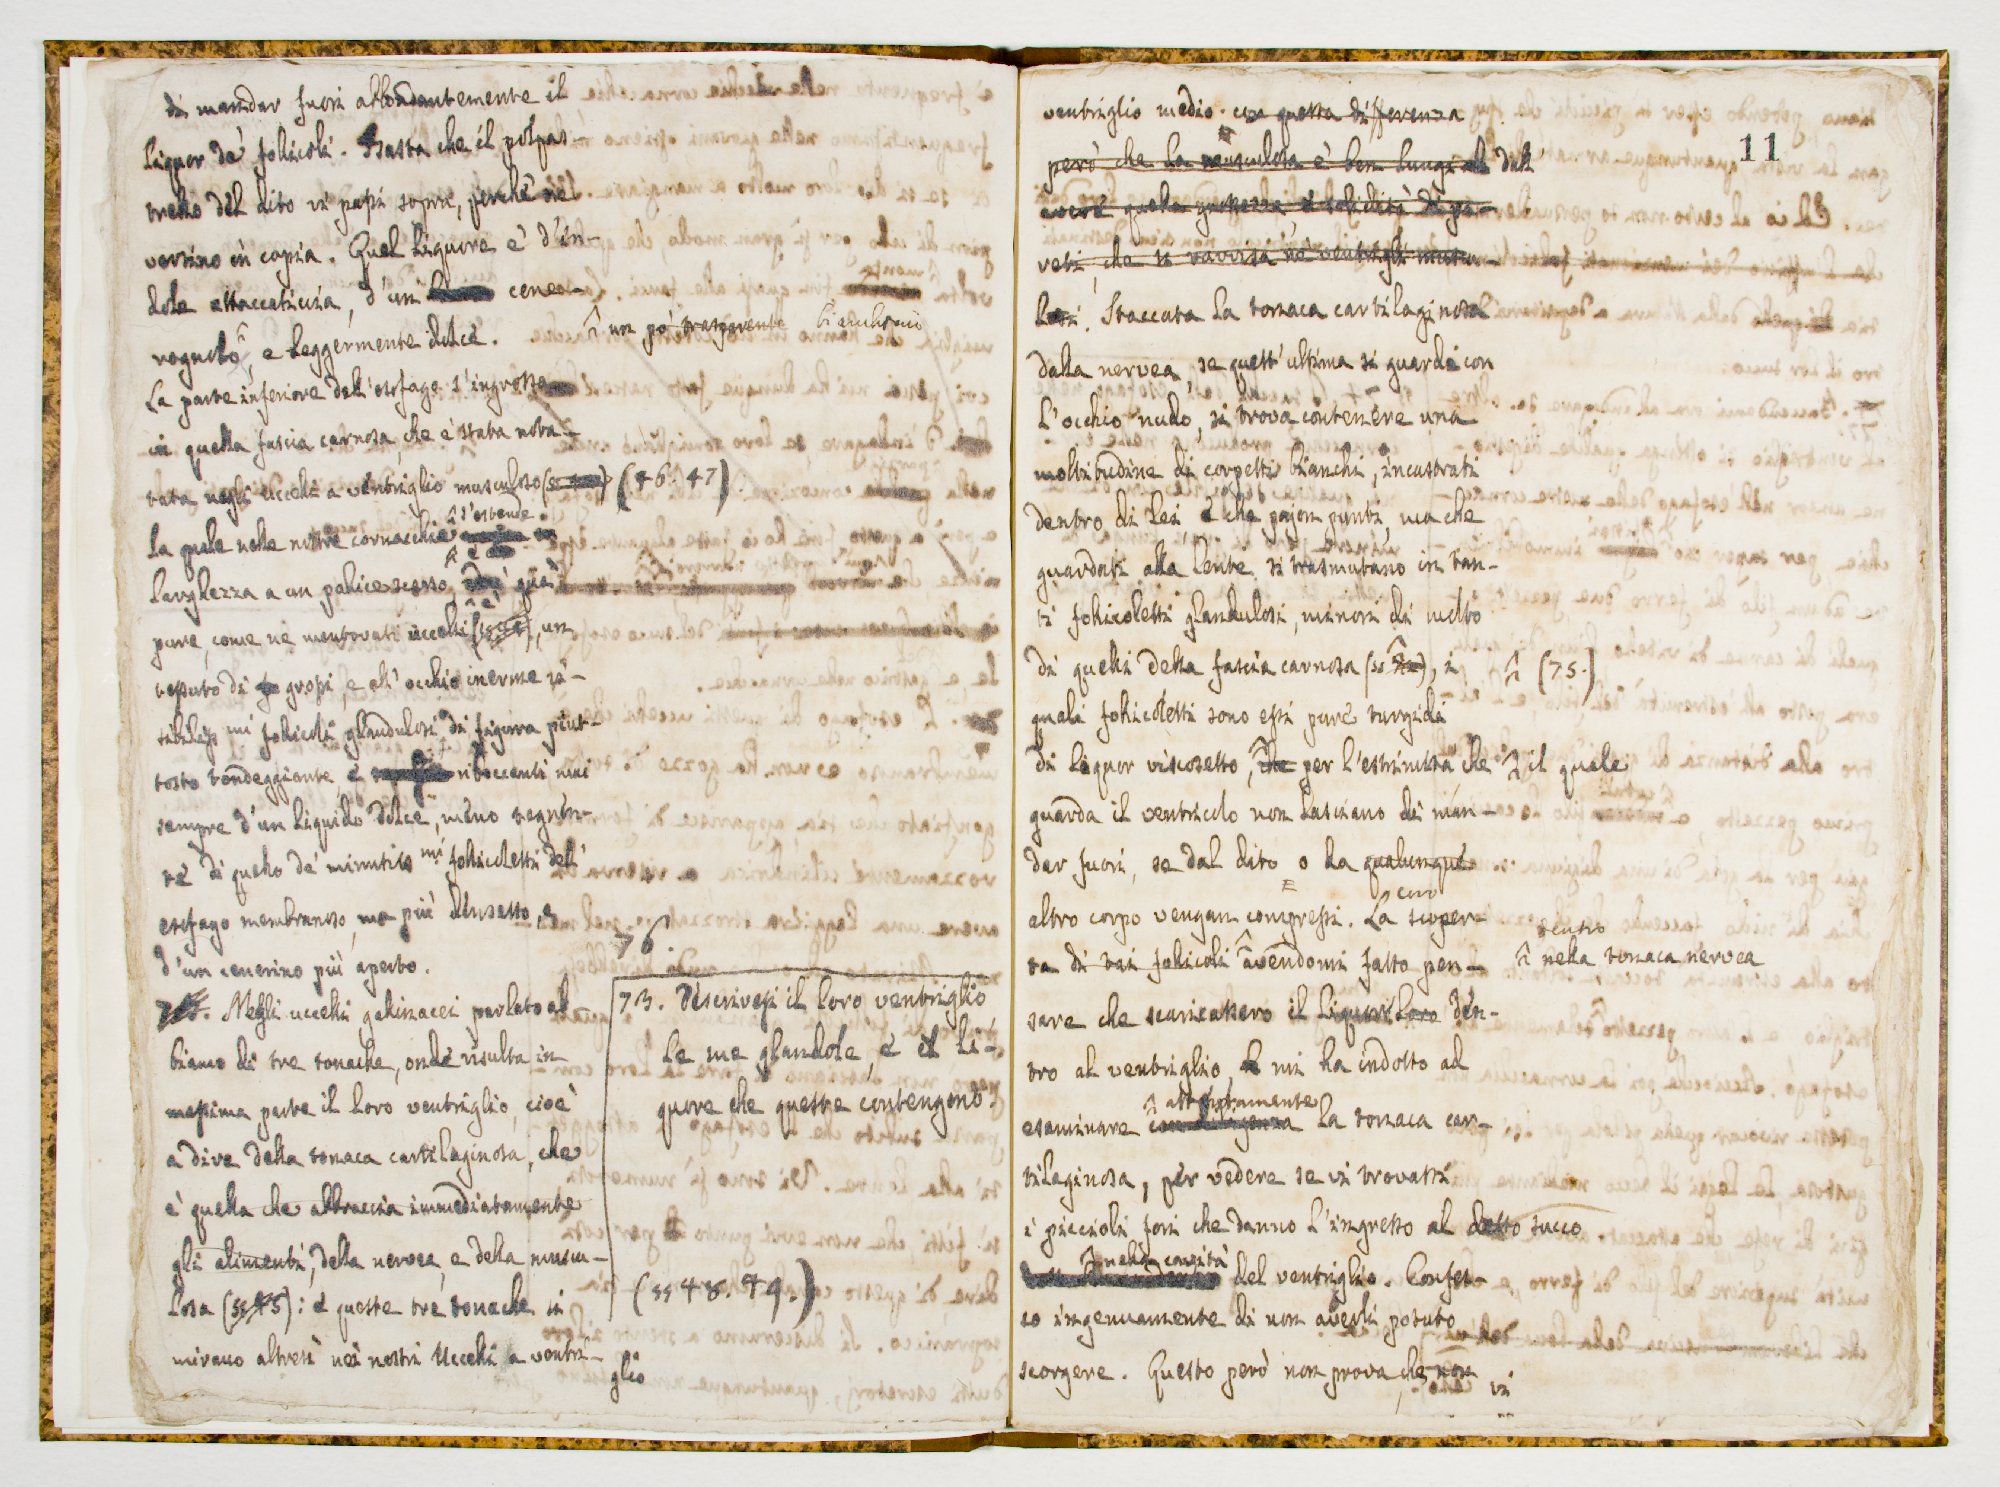 di mandar fuori abbondantemente il
liquor de' follicoli. Basta che il polpas-
trello del dito vi passi sopra, perchè ne
versino in copia. Quel liquore è d'in-
dole attaccaticcia, d'un cene-
rognolo, e leggermente dolce. un po' trasparente bianchiccio
La parte inferiore dell'esofago s'ingrossa
in quella fascia carnosa, che è stata nota-
tata negli uccelli a ventriglio muscoloso (46. 47)
s'estende
la quale nelle nostre cornacchie in
larghezza a un pollice scarso, e qui
pure, come ne' mentovati uccelli, un
tessuto di grossi, e all'occhio inerme vi-
sibilissimi follicoli glandulosi di figura piut-
tosto tondeggiante, e riboccanti mai
sempre d'un liquido dolce, meno tegnen-
te di quello de' minutissimi follicoletti dell'
esofago membranoso, ma più denso, e
d'un cenerino più aperto.
76.
Negli uccelli gallinacei parlato ab-
biamo di tre tonache, onde risulta in
massima parte il loro ventriglio, cioè
a dire della tonaca cartilaginosa, che
è quella che abbraccia immediatamente
gli alimenti, della nervea, e della muscu-
losa (§ 45): e queste tre tonache si
mirano altresì nei nostri Uccelli a ventri-
glio
73. Descrivesi il loro ventriglio
le sue glandole, e il li-
quore che queste contengono.
(§§ 48. 49.)
11
ventriglio medio. con questa differenza
però che la musculosa è ben lungi dall'
avere quella grossezza, e solidità di pa-
reti, che si ravvisa ne' ventrigli muscu-
losi. Staccata la tonaca cartilaginosa
dalla nervea, se quest'ultima si guardi con
l'occhio nudo, si trova contenere una
moltitudine di corpetti bianchi, incastrati
dentro di lei e che pajon punti, ma che
guardati alla lente si trasmutano in tan-
ti follicoletti glandulosi, minori di molto
di quelli della fascia carnosa, i (75.)
quali follicoletti sono essi pure turgidi
di liquor viscosetto, che per l'estremità che il quale
guarda il ventricolo non lasciano di man-
dar fuori, se dal dito o da qualunque
altro corpo vengan compressi. La scoper-
ta di tai follicoli avendomi fatto pen- dentro nella tonaca nervea
sare che scaricassero il liquor loro den-
tro al ventriglio, mi ha indotto ad
attentamente
esaminare con diligenza la tonaca car-
tilaginosa, per vedere se vi trovassi
i piccioli fori che danno l'ingresso al detto succo
nella cavità del ventriglio. Confes-
so ingenuamente di non averli potuto
scorgere. Questo però non prova, che non
vi